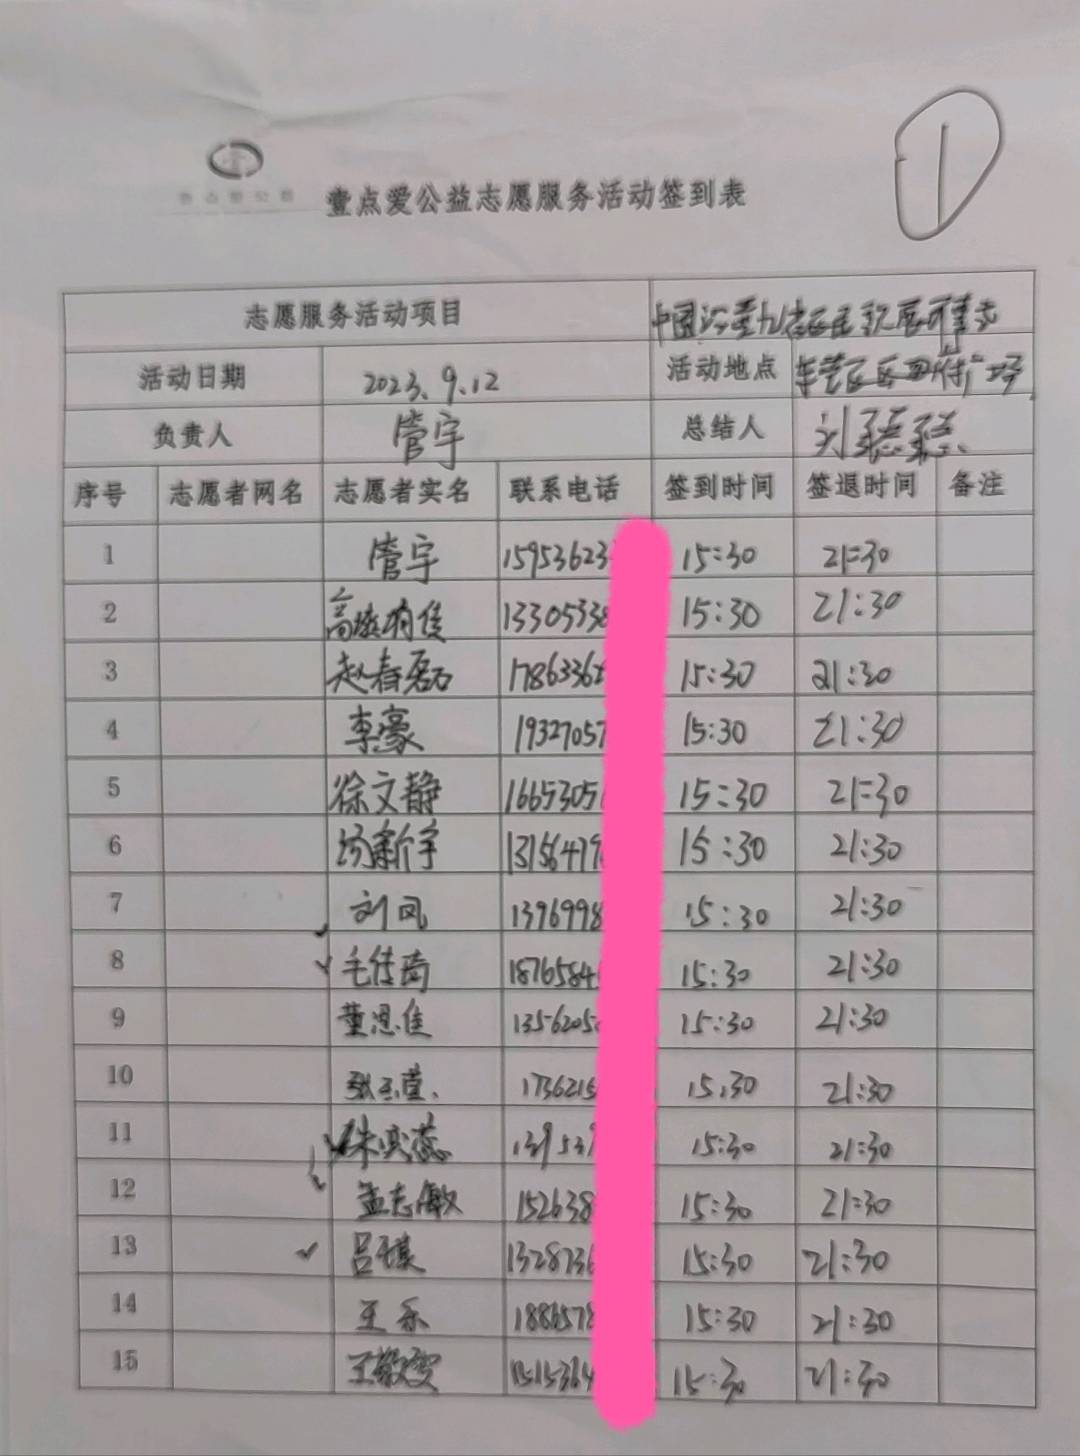 1
壹点爱公益
壹点爱公益志愿服务活动签到表
志愿服务活动项目 中国
活动日期 2023.9.12 活动地点
负责人 管宇 总结人 刘
序号 志愿者网名 志愿者实名 联系电话 签到时间 签退时间 备注
1 管宇 15953623 15:30 21:30
2 高 13305338 15:30 21:30
3 赵春磊 1786336 15:30 21:30
4 李豪 19327057 15:30 21:30
5 徐文静 1665305 15:30 21:30
6 杨新宇 13156479 15:30 21:30
7 刘凤 1396998 15:30 21:30
8 毛传 1876584 15:30 21:30
9 董思佳 1356205 15:30 21:30
10 张 1736215 15:30 21:30
11 朱 139539 15:30 21:30
12 孟志敏 152638 15:30 21:30
13 吕琪 1328736 15:30 21:30
14 王乐 1886578 15:30 21:30
15 王敬雯 1515364 15:30 21:30